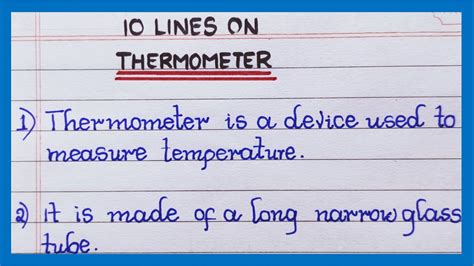 10 LINES ON
THERMOMETER
1) Thermometer is a device used to
measure temperature.
2) It is made of a long narrow glass
tube.